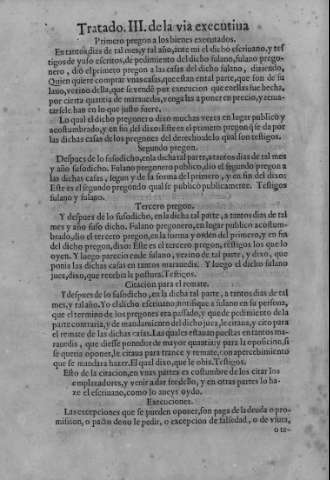 Tratado. III. de la via executiua
Primero pregon a los bienes executados.
En tantos dias de tal mes, y tal año, ante mi el dicho escriuano, y tes
tigos de yuso escritos, de pedimiento del dicho fulano, fulano prego-
nero, dio el primero pregon a las casas del dicho fulano, diziendo,
Quien quiere comprar vnas casas, que estan en tal parte, que son de fu
lano, vezino della, que se vendē por execucion que en ellas fue hecha,
por cierta quantia de marauedis, venga las a poner en precio, y rema-
tarsele han en lo que justo fuere.
Lo qual el dicho pregonero dixo muchas vezes en lugar publico y
acostumbrado, y en fin del dixo: Este es el primero pregon q̄ se da por
las dichas casas de los pregones del derecho: de lo qual son testigos.
Segundo pregon.
Despues de lo susodicho, en la dicha tal parte, a tantos dias de tal mes
y año susodicho. Fulano pregonero publico, dio el segundo pregon a
las dichas casas, segun y de la forma del primero, y en fin del dixo:
Este es el segundo pregon: lo qual se publicò publicamente. Testigos
fulano y fulano.
Tercero pregon.
Y despues de lo susodicho, en la dicha tal parte, a tantos dias de tal
mes y año suso dicho. Fulano pregonero, en lugar publico acostum-
brado, dio el tercero pregon, en la forma y orden del primero, y en fin
del dicho pregon, dixo: Este es el tercero pregon, testigos los que lo
oyen. Y luego parecio ende fulano, vezino de tal parte, y dixo, que
ponia las dichas casas en tantos marauedis. Y luego el dicho fulano
juez, dixo, que recebia la postura. Testigos.
Citacion para el remate.
Y despues de lo susodicho, en la dicha tal parte, a tantos dias de tal
mes, y tal año. Yo el dicho escriuano, notifique a fulano en su persona,
que el termino de los pregones era passado, y que de pedimento de la
parte contraria, y de mandamiento del dicho juez, le citaua, y cito para
el remate de las dichas casas. Las quales estauan puestas en tantos ma-
rauedis, que diesse ponedor de mayor quantia: y para la oposicion, si
se queria oponer, le citaua para trance y remate, con apercebimiento
que se mandara hazer. El qual dixo, que lo ohia. Testigos.
Esto de la citacion, en vnas partes es costumbre de los citar los
emplazadores, y venir a dar fee dello, y en otras partes lo ha-
ze el escriuano, como lo aueys oydo.
Execuciones.
Las excepciones que se pueden oponer, son paga de la deuda o pro-
mission, o pacto de no le pedir, o excepcion de falsedad, o de vsura,
o te-